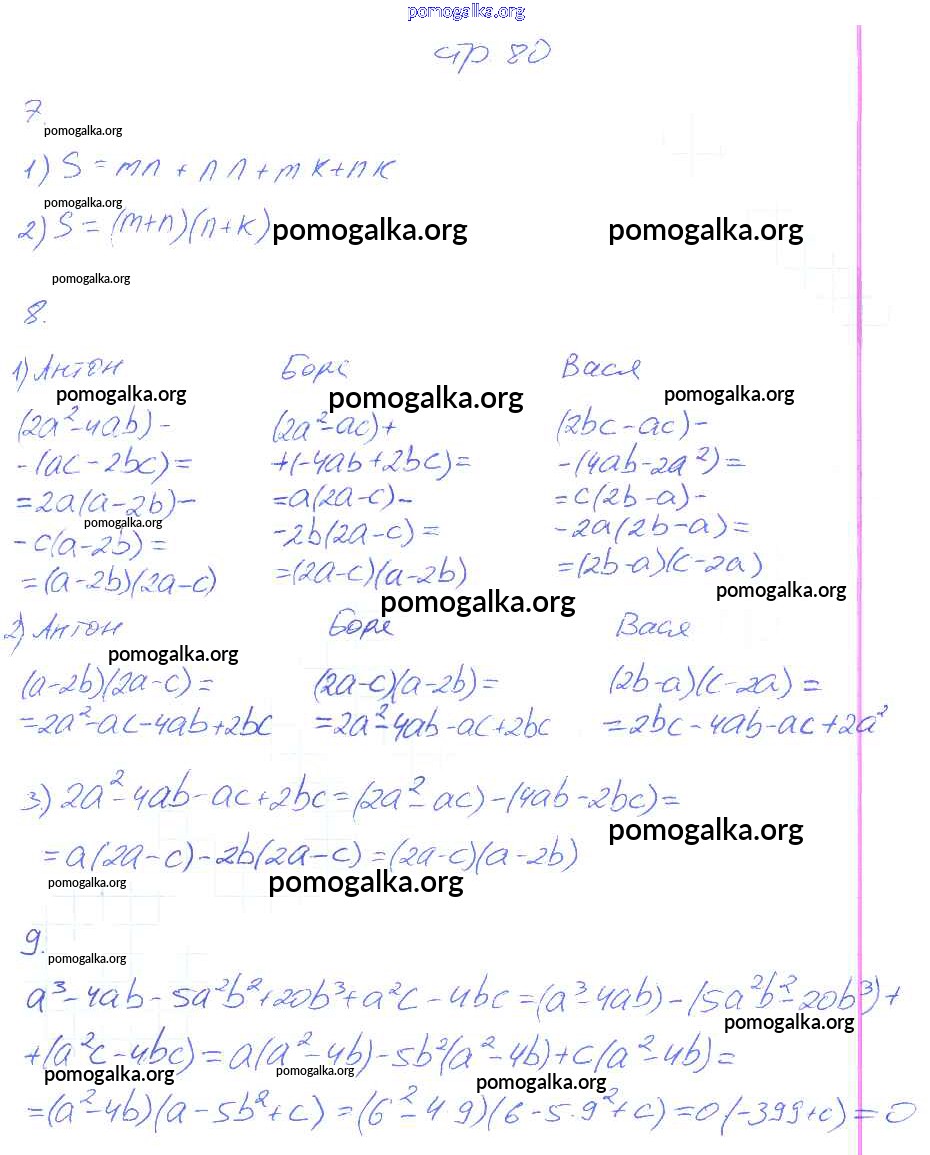 pomogalka.org
стр 80
7.
pomogalka.org
1) S = mn + nn + mk + nk
pomogalka.org
2) S = (m+n)(n+k) pomogalka.org pomogalka.org
pomogalka.org
8.
1) Антон Боря Вася
pomogalka.org pomogalka.org pomogalka.org
(2a²-4ab)- (2a²-ac)+ (2bc-ac)-
-(ac-2bc)= +(-4ab+2bc)= -(4ab-2a²)=
=2a(a-2b)- =a(2a-c)- =c(2b-a)-
pomogalka.org
-c(a-2b)= -2b(2a-c)= -2a(2b-a)=
=(a-2b)(2a-c) =(2a-c)(a-2b) =(2b-a)(c-2a)
pomogalka.org pomogalka.org
2) Антон Боря Вася
pomogalka.org
(a-2b)(2a-c)= (2a-c)(a-2b)= (2b-a)(c-2a)=
=2a²-ac-4ab+2bc =2a²-4ab-ac+2bc =2bc-4ab-ac+2a²
3.) 2a²-4ab-ac+2bc=(2a²-ac)-(4ab-2bc)=
pomogalka.org
=a(2a-c)-2b(2a-c)=(2a-c)(a-2b)
pomogalka.org pomogalka.org
9.
pomogalka.org
a³-4ab-5a²b²+20b³+a²c-4bc=(a³-4ab)-(5a²b²-20b³)+
pomogalka.org
+(a²c-4bc)=a(a²-4b)-5b²(a²-4b)+c(a²-4b)=
pomogalka.org pomogalka.org pomogalka.org
=(a²-4b)(a-5b²+c)=(6²-4 9)(6-5·9²+c)=0(-399+c)=0